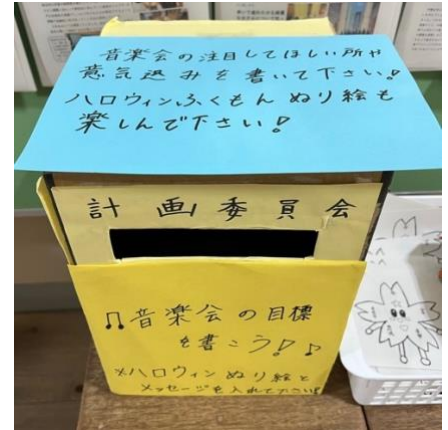 音楽会の注目してほしい所や
意気込みを書いて下さい!
ハロウィンふくもんぬり絵も
楽しんで下さい!
計画委員会
♫音楽会の目標
を書こう!♪
※ハロウィンぬり絵と
メッセージを入れて下さい!